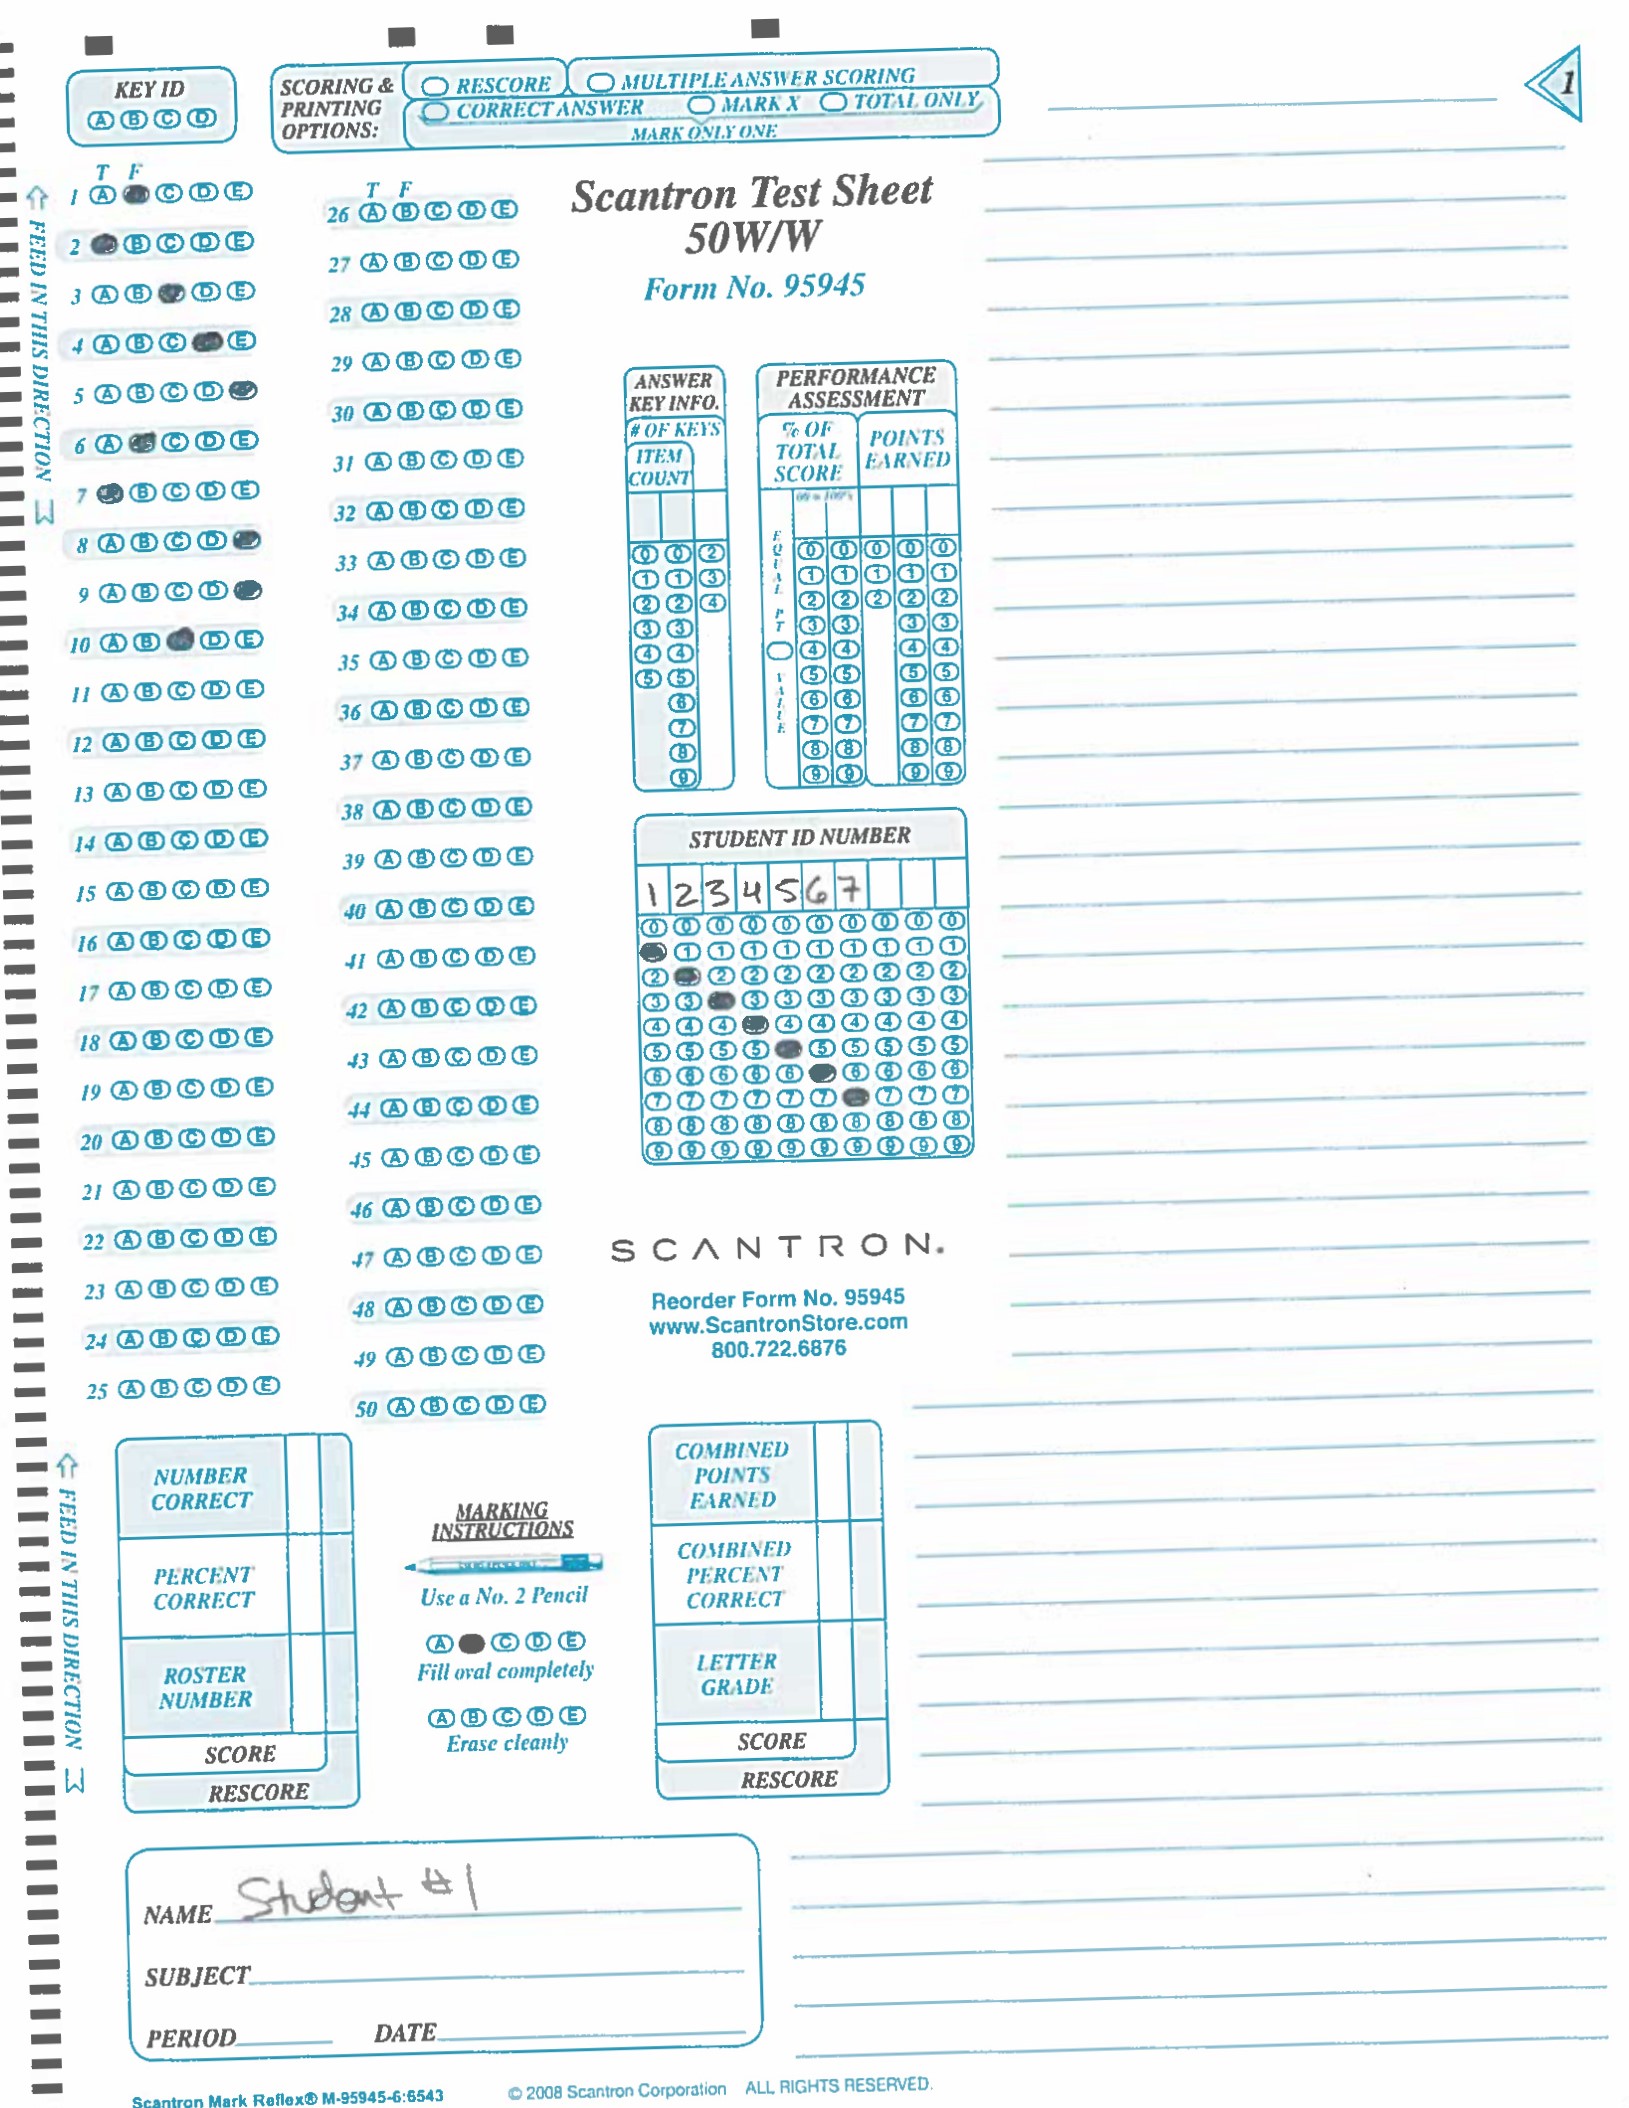 KEY ID
A B C D
SCORING & PRINTING OPTIONS:
RESCORE MULTIPLE ANSWER SCORING
CORRECT ANSWER MARK X TOTAL ONLY
MARK ONLY ONE
1
FEED IN THIS DIRECTION
T F
1 A C D E
2 B C D E
3 A B D E
4 A B C E
5 A B C D
6 A C D E
7 B C D E
8 A B C D
9 A B C D
10 A B D E
11 A B C D E
12 A B C D E
13 A B C D E
14 A B C D E
15 A B C D E
16 A B C D E
17 A B C D E
18 A B C D E
19 A B C D E
20 A B C D E
21 A B C D E
22 A B C D E
23 A B C D E
24 A B C D E
25 A B C D E
T F
26 A B C D E
27 A B C D E
28 A B C D E
29 A B C D E
30 A B C D E
31 A B C D E
32 A B C D E
33 A B C D E
34 A B C D E
35 A B C D E
36 A B C D E
37 A B C D E
38 A B C D E
39 A B C D E
40 A B C D E
41 A B C D E
42 A B C D E
43 A B C D E
44 A B C D E
45 A B C D E
46 A B C D E
47 A B C D E
48 A B C D E
49 A B C D E
50 A B C D E
Scantron Test Sheet
50W/W
Form No. 95945
ANSWER
KEY INFO.
# OF KEYS
ITEM
COUNT
0 0 2
1 1 3
2 2 4
3 3
4 4
5 5
6
7
8
9
PERFORMANCE
ASSESSMENT
% OF
TOTAL
SCORE
POINTS
EARNED
00 = 100%
EQUAL PT VALUE
0 0 0 0 0
1 1 1 1 1
2 2 2 2 2
3 3 3 3
4 4 4 4
5 5 5 5
6 6 6 6
7 7 7 7
8 8 8 8
9 9 9 9
STUDENT ID NUMBER
1 2 3 4 5 6 7
0 0 0 0 0 0 0 0 0 0
1 1 1 1 1 1 1 1 1
2 2 2 2 2 2 2 2 2
3 3 3 3 3 3 3 3 3
4 4 4 4 4 4 4 4 4
5 5 5 5 5 5 5 5 5
6 6 6 6 6 6 6 6 6
7 7 7 7 7 7 7 7 7
8 8 8 8 8 8 8 8 8 8
9 9 9 9 9 9 9 9 9 9
SCANTRON.
Reorder Form No. 95945
www.ScantronStore.com
800.722.6876
FEED IN THIS DIRECTION
NUMBER
CORRECT
PERCENT
CORRECT
ROSTER
NUMBER
SCORE
RESCORE
MARKING
INSTRUCTIONS
Use a No. 2 Pencil
A C D E
Fill oval completely
A B C D E
Erase cleanly
COMBINED
POINTS
EARNED
COMBINED
PERCENT
CORRECT
LETTER
GRADE
SCORE
RESCORE
NAME Student #1
SUBJECT
PERIOD DATE
Scantron Mark Reflex® M-95945-6:6543 © 2008 Scantron Corporation ALL RIGHTS RESERVED.